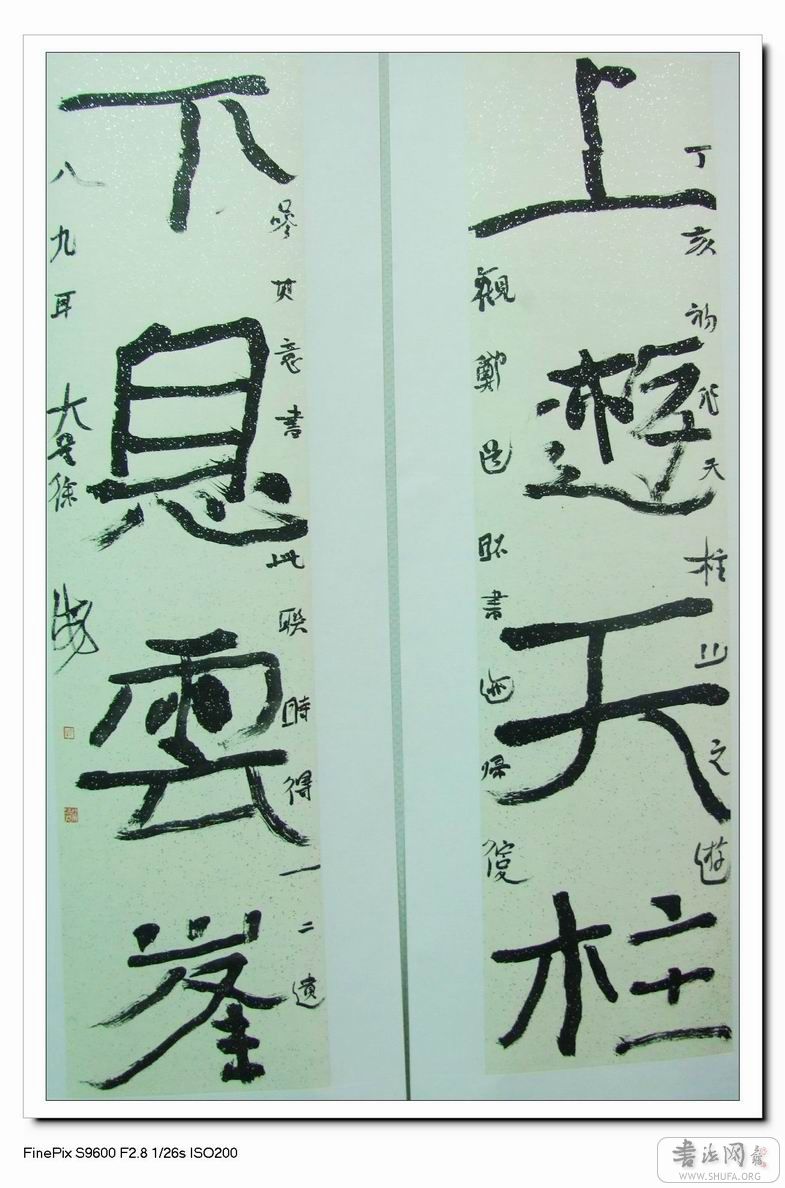 上遊天柱
丁亥初我天柱山之遊
觀鄭道昭書迹歸後
下息雲峯
參其意書
此聯時得一二遺
八九耳
大
徐海
FinePix S9600 F2.8 1/26s ISO200
書法网
WWW.SHUFA.ORG